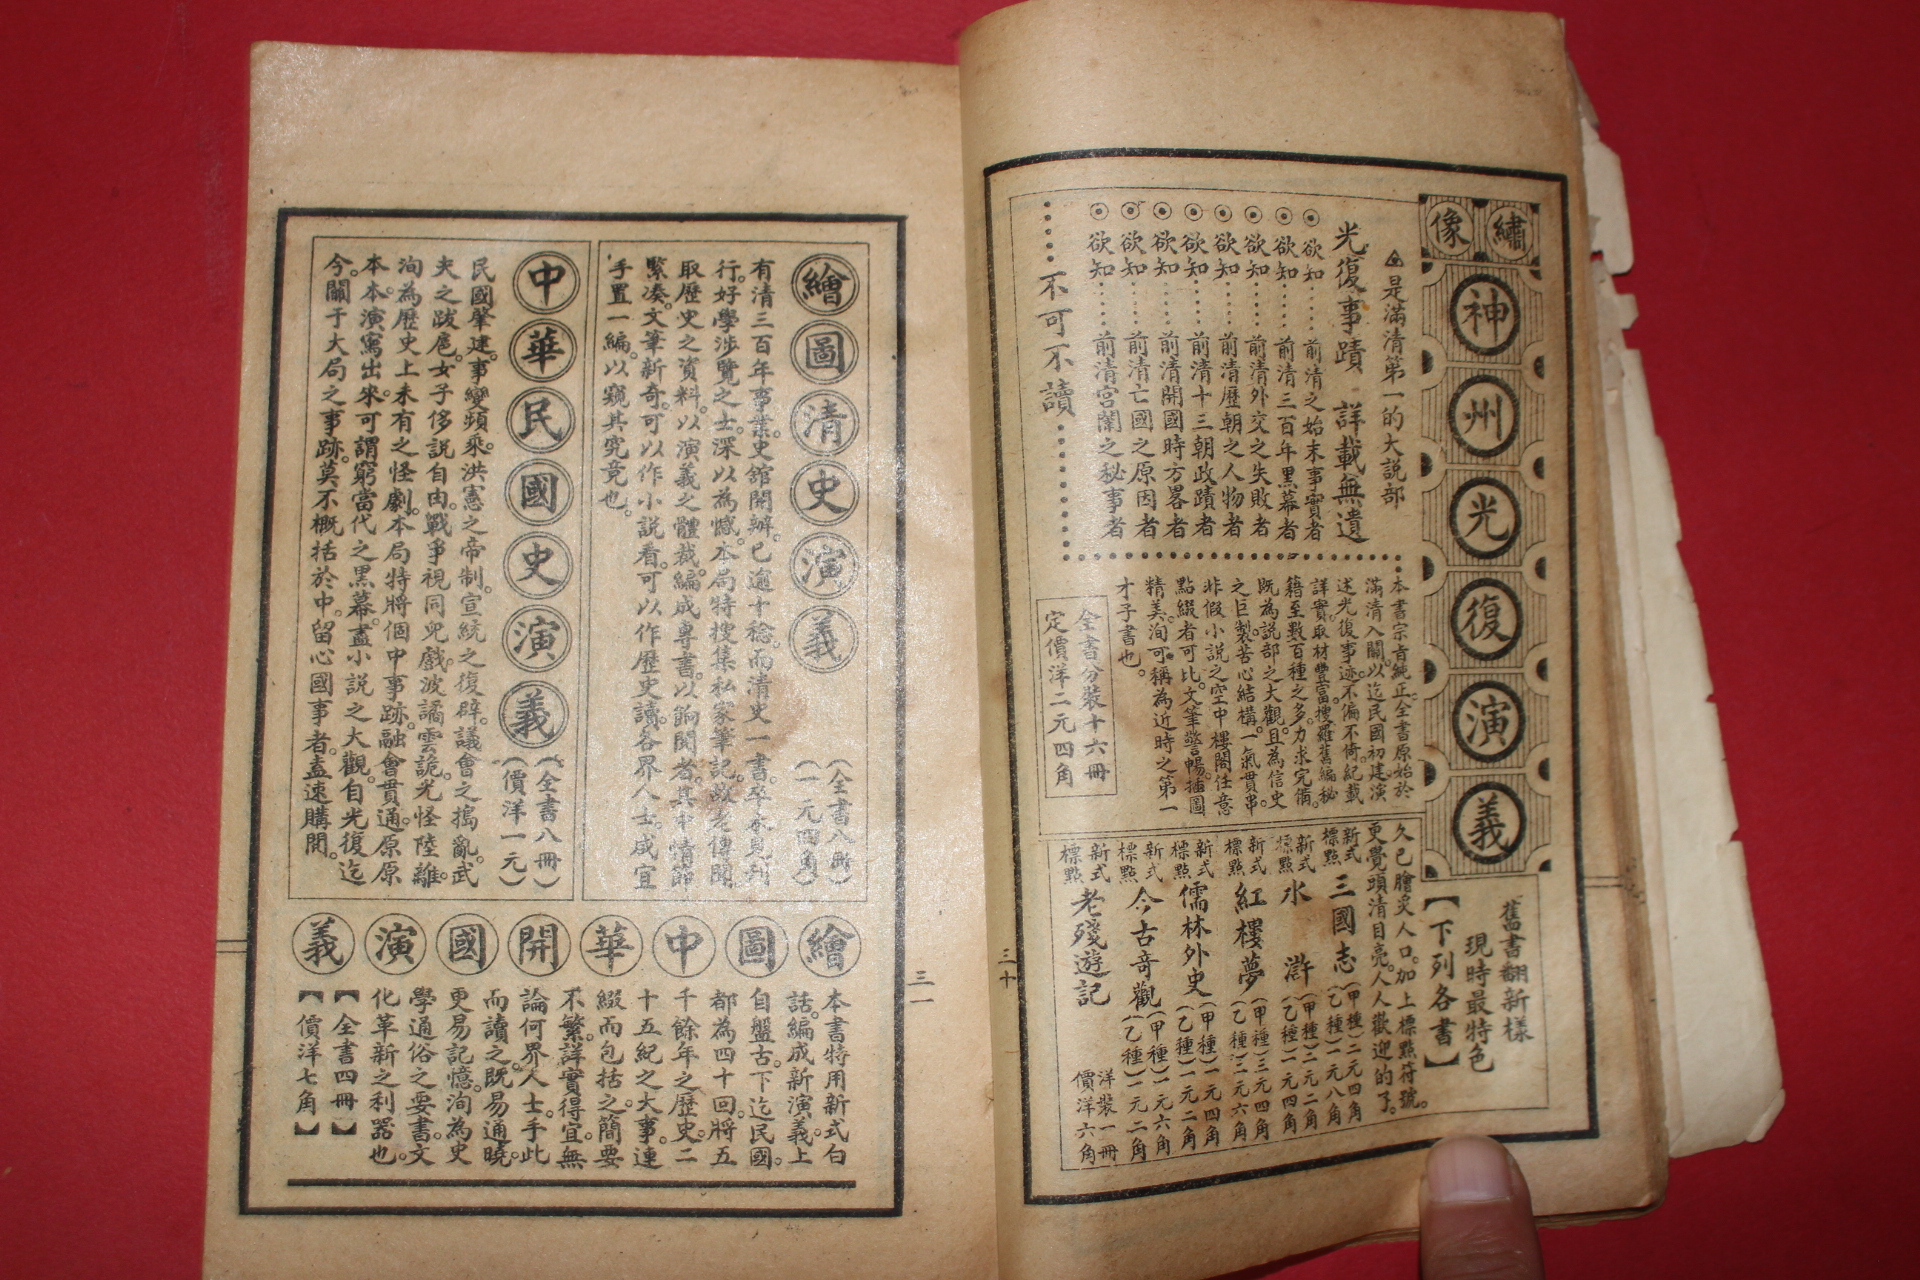 繡像
神州光復演義
▲是滿清第一的大説部
光復事蹟 詳載無遺
◎欲知……前清之始末事實者
◎欲知……前清三百年黑幕者
◎欲知……前清外交之失敗者
◎欲知……前清歷朝之人物者
◎欲知……前清十三朝政蹟者
◎欲知……前清開國時方畧者
◎欲知……前清亡國之原因者
◎欲知……前清宮闈之秘事者
……不可不讀……
本書宗旨純正。全書原始於
滿清入關。以迄民國初建。演
述光復事迹。不偏不倚。紀載
詳實。取材豐富。搜羅舊編秘
籍至數百種之多。力求完備。
既為説部之大觀。且為信史
之巨製。苦心結構。一氣貫串
非假小説之空中樓閣任意
點綴者可比。文筆警暢。插圖
精美。洵可稱為近時之第一
才子書也。
全書分裝十六冊
定價洋二元四角
舊書翻新樣
現時最特色
【下列各書】
久已膾炙人口。加上標點符號。
更覺頭清目亮。人人歡迎的了。
新式標點 三國志 (甲種)二元四角 (乙種)一元八角
新式標點 水滸 (甲種)二元二角 (乙種)一元四角
新式標點 紅樓夢 (甲種)三元四角 (乙種)二元六角
新式標點 儒林外史 (甲種)一元四角 (乙種)一元二角
新式標點 今古奇觀 (甲種)一元六角 (乙種)一元二角
新式標點 老殘遊記 洋裝一冊 價洋六角
三十
三一
繪圖清史演義
(全書八冊)
(一元四角)
有清三百年事業。史館開辦。已逾十稔。而清史一書。卒未見刊
行。好學涉覽之士。深以為憾。本局特搜集私家筆記。故老傳聞
取歷史之資料。以演義之體裁。編成專書。以餉閱者。其中情節
緊湊。文筆新奇。可以作小説看。可以作歷史讀。各界人士。咸宜
手置一編。以窺其究竟也。
中華民國史演義
(全書八冊)
(價洋一元)
民國肇建。事變頻乘。洪憲之帝制。宣統之復辟。議會之搗亂。武
夫之跋扈。女子侈説自由。戰爭視同兒戲。波譎雲詭。光怪陸離。
洵為歷史上未有之怪劇。本局特將個中事跡。融會貫通。原原
本本。演寫出來。可謂窮當代之黑幕。盡小説之大觀。自光復迄
今。關于大局之事跡。莫不概括於中。留心國事者。盍速購閱。
繪圖中華開國演義
本書特用新式白
話。編成新演義。上
自盤古。下迄民國。
都為四十回。將五
千餘年之歷史。二
十五紀之大事。連
綴而包括之。簡要
不繁。詳實得宜。無
論何界人士。手此
而讀之。既易通曉。
更易記憶。洵為史
學通俗之要書。文
化革新之利器也。
【全書四冊】
【價洋七角】